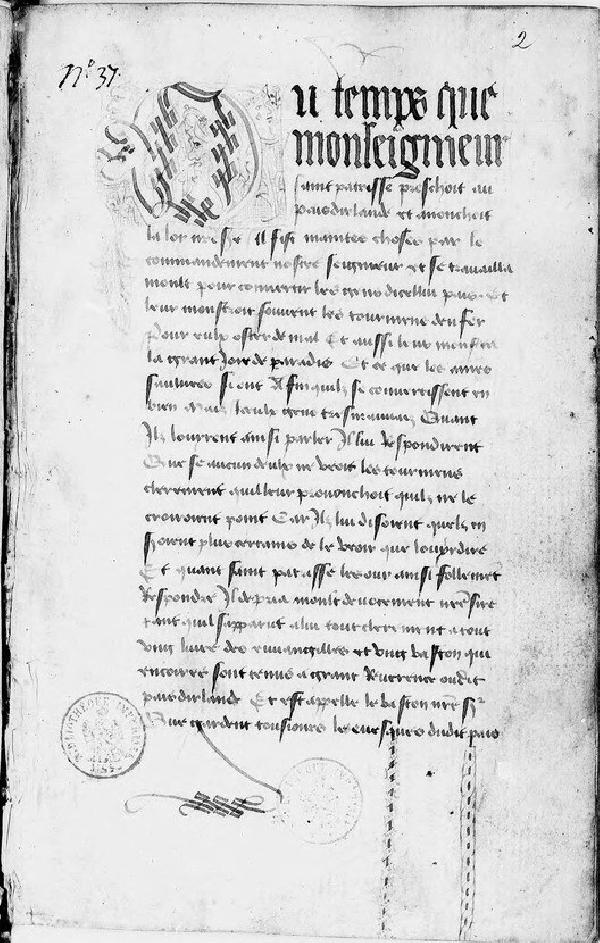 N° 37.
2
Ou temps que
monseigneur
saint patrisse preschoit au
pais dirlande et anonchoit
la loy Il fist maintes choses par le
commandement nostre seigneur et se travailla
moult pour convertir les gens dicellui pays Et
leur monstroit souvent les tourmens denfer
Pour eulx oster de mal Et aussi leur monstra
la grant Joie de paradis Et ce que les ames
sauluees si ont Afin quilz se convertissent en
bien Mais leulx gent tresmauuaiz Quant
Ilz louirent ainsi parler Il lui Respondirent
Que se aucun deulx ne veoit les tourmens
clerement quil leur prononchoit quilz ne le
croiroient point Car Ilz lui disoient quelz en
seroient plus certains de le veoir que loupr dire
Et quant saint patrisse les our ainsi follement
Respondre Il depria moult devotement nre sire
tant quil sapparut a lui tout clerement a tout
ung livre des euuangilles et ung baston qui
encoires sont tenus a grant Reverence oudit
pais dirlande Et est appelle le baston nre sr
Que gardent tousiours les evesques dudit pais